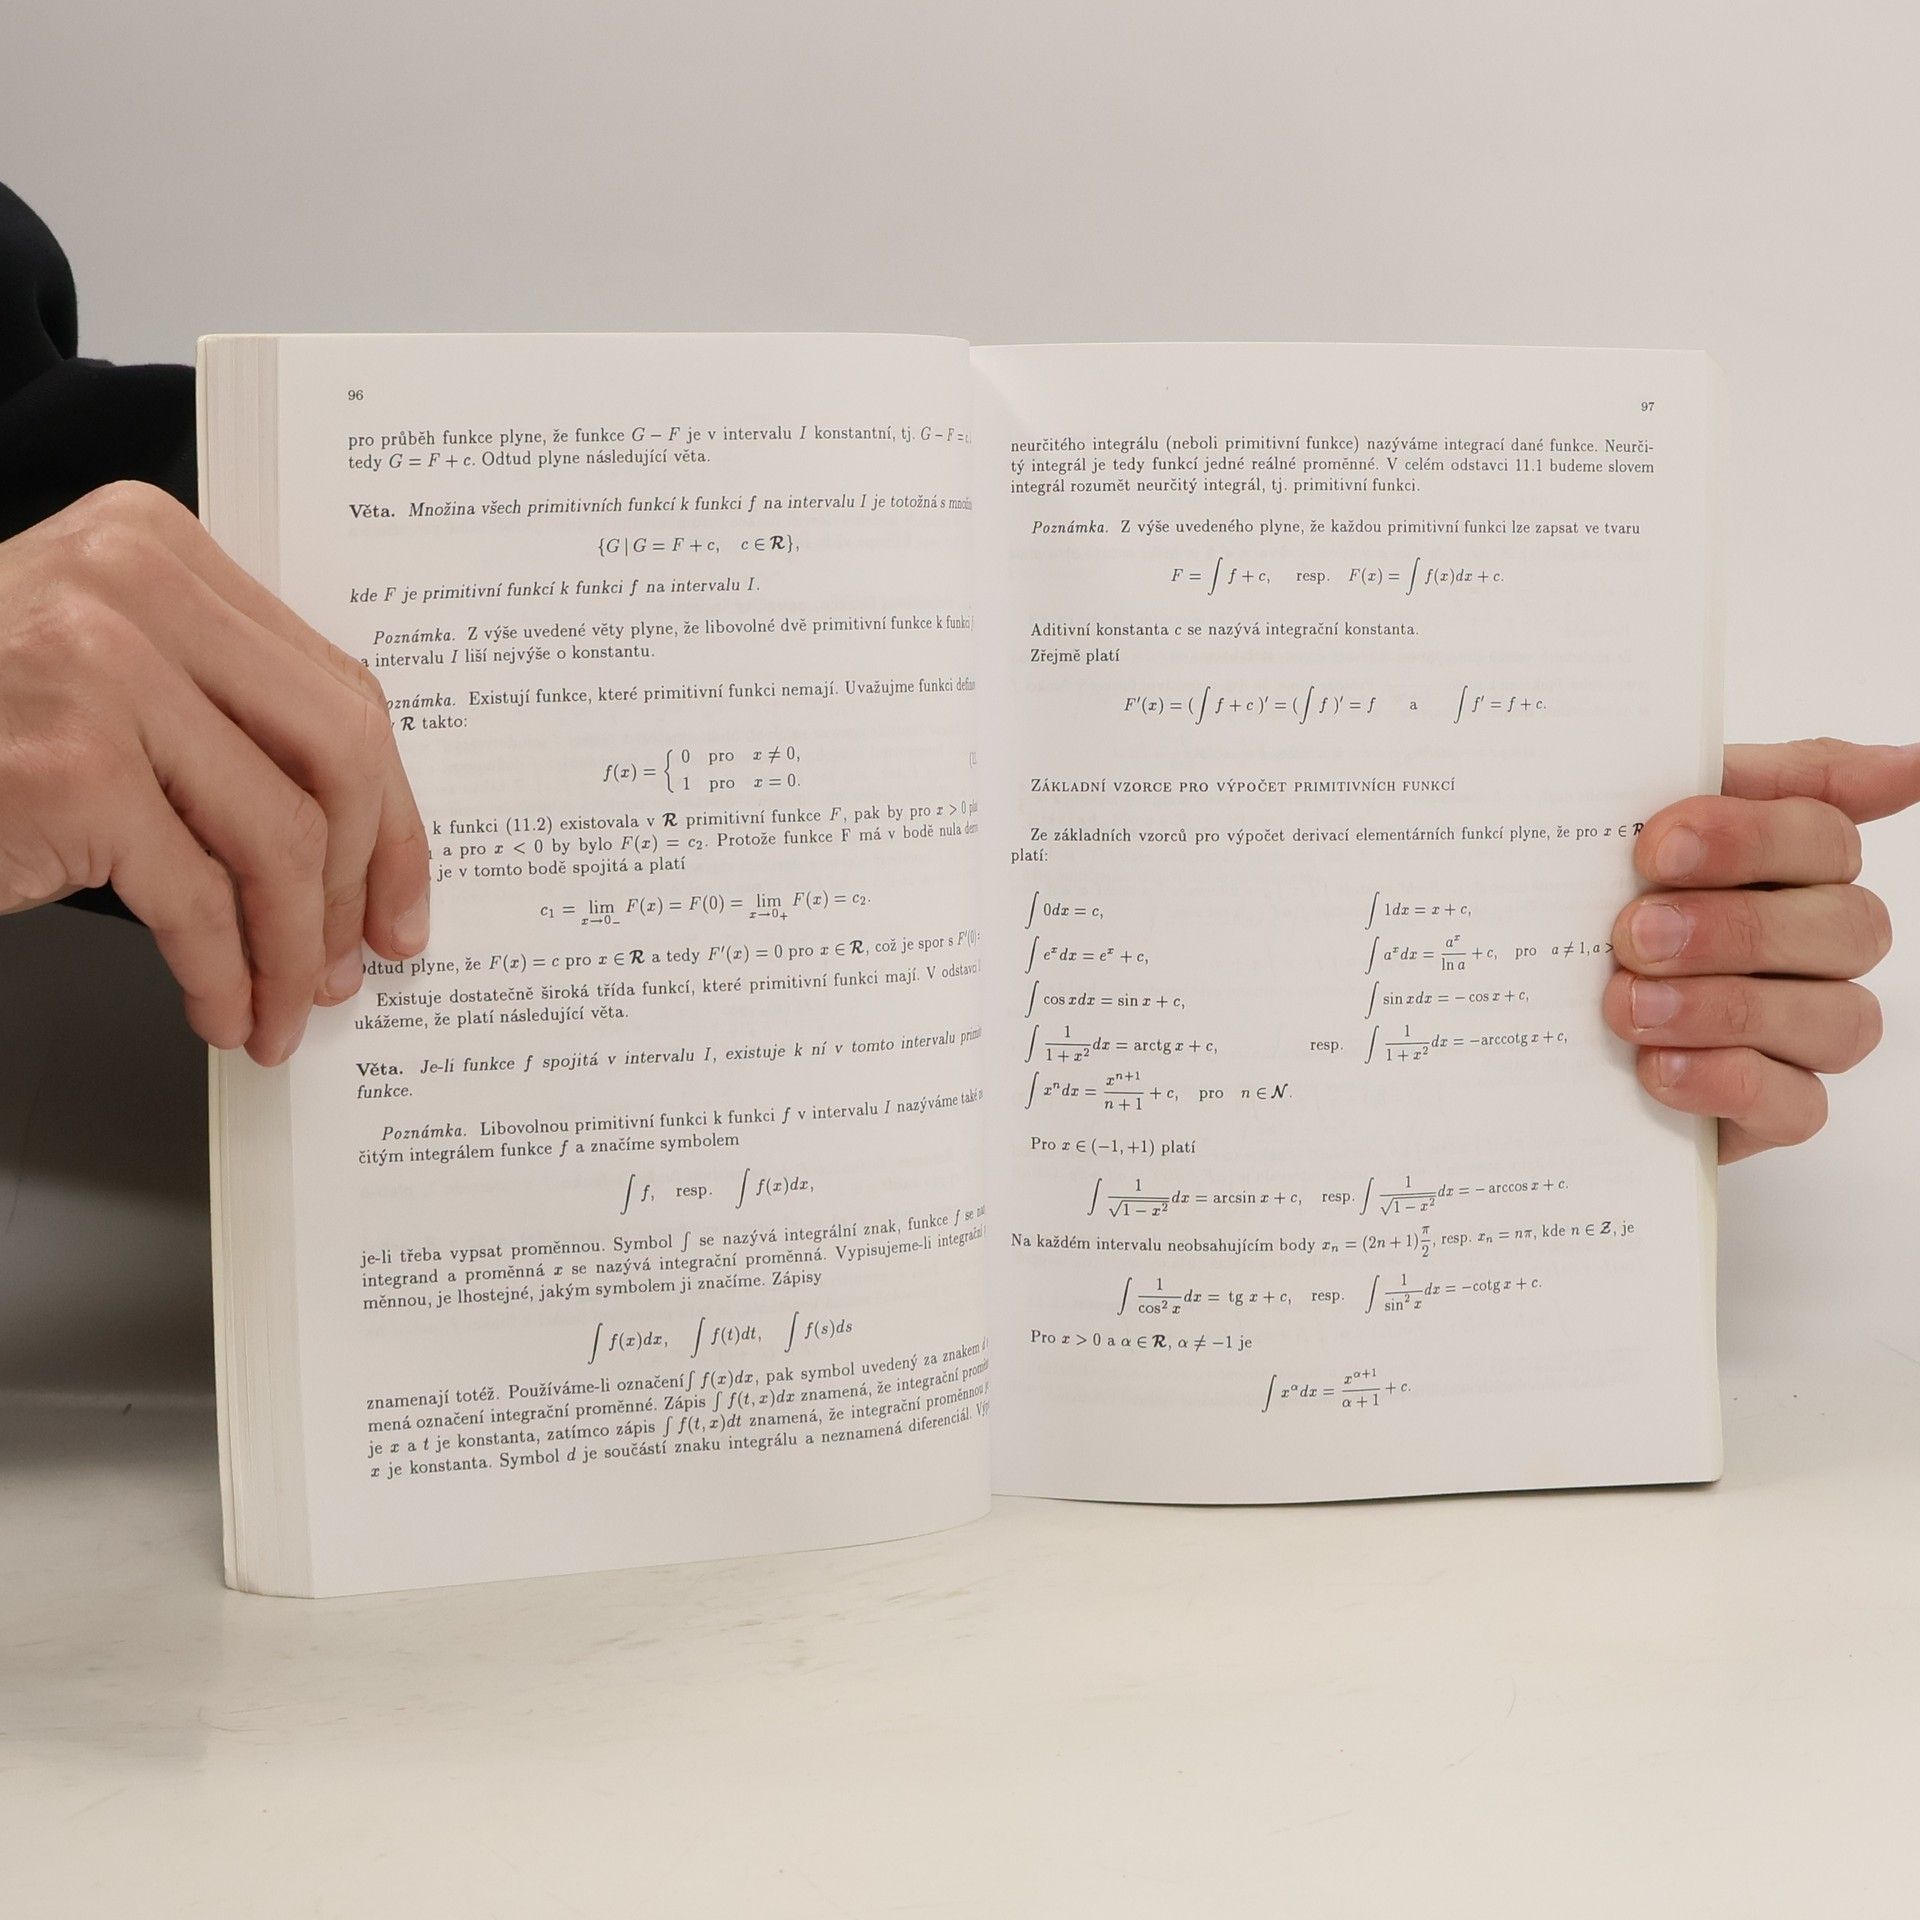 96
pro průběh funkce plyne, že funkce G − F je v intervalu I konstantní, tj. G − F =
tedy G = F + c. Odtud plyne následující věta.
Věta. Množina všech primitivních funkcí k funkci f na intervalu I je totožná s
{G | G = F + c, c ∈ R},
kde F je primitivní funkcí k funkci f na intervalu I.
Poznámka. Z výše uvedené věty plyne, že libovolné dvě primitivní funkce k
a intervalu I liší nejvýše o konstantu.
Existují funkce, které primitivní funkci nemají. Uvažujme funkci
R takto:
f(x) = { 0 pro x ≠ 0,
1 pro x = 0.
k funkci (11.2) existovala v R primitivní funkce F, pak by pro x > 0
a pro x < 0 by bylo F(x) = c₂. Protože funkce F má v bodě nula
je v tomto bodě spojitá a platí
c₁ = lim x→0₋ F(x) = F(0) = lim x→0₊ F(x) = c₂.
plyne, že F(x) = c pro x ∈ R a tedy F′(x) = 0 pro x ∈ R, což je spor s F′(0)
Existuje dostatečně široká třída funkcí, které primitivní funkci mají. V
ukážeme, že platí následující věta.
Věta. Je-li funkce f spojitá v intervalu I, existuje k ní v tomto intervalu
funkce.
Poznámka. Libovolnou primitivní funkci k funkci f v intervalu I nazýváme také
čitým integrálem funkce f a značíme symbolem
∫ f, resp. ∫ f(x)dx,
je-li třeba vypsat proměnnou. Symbol ∫ se nazývá integrální znak, funkce f se
integrand a proměnná x se nazývá integrační proměnná. Vypisujeme-li
měnnou, je lhostejné, jakým symbolem ji značíme. Zápisy
∫ f(x)dx, ∫ f(t)dt, ∫ f(s)ds
znamenají totéž. Používáme-li označení ∫ f(x)dx, pak symbol uvedený za znakem d
mená označení integrační proměnné. Zápis ∫ f(t, x)dx znamená, že integrační
je x a t je konstanta, zatímco zápis ∫ f(t, x)dt znamená, že integrační proměnnou
x je konstanta. Symbol d je součástí znaku integrálu a neznamená diferenciál.
97
neurčitého integrálu (neboli primitivní funkce) nazýváme integrací dané funkce. Neurči-
tý integrál je tedy funkcí jedné reálné proměnné. V celém odstavci 11.1 budeme slovem
integrál rozumět neurčitý integrál, tj. primitivní funkci.
Poznámka. Z výše uvedeného plyne, že každou primitivní funkci lze zapsat ve tvaru
F = ∫ f + c, resp. F(x) = ∫ f(x)dx + c.
Aditivní konstanta c se nazývá integrační konstanta.
Zřejmě platí
F′(x) = (∫ f + c)′ = (∫ f)′ = f a ∫ f′ = f + c.
ZÁKLADNÍ VZORCE PRO VÝPOČET PRIMITIVNÍCH FUNKCÍ
Ze základních vzorců pro výpočet derivací elementárních funkcí plyne, že pro x ∈ R
platí:
∫ 0dx = c, ∫ 1dx = x + c,
∫ eˣdx = eˣ + c, ∫ aˣdx = aˣ/ln a + c, pro a ≠ 1, a >
∫ cos xdx = sin x + c, ∫ sin xdx = − cos x + c,
∫ 1/(1 + x²) dx = arctg x + c, resp. ∫ 1/(1 + x²) dx = −arccotg x + c,
∫ xⁿdx = xⁿ⁺¹/(n + 1) + c, pro n ∈ N.
Pro x ∈ (−1, +1) platí
∫ 1/√(1 − x²) dx = arcsin x + c, resp. ∫ 1/√(1 − x²) dx = − arccos x + c.
Na každém intervalu neobsahujícím body xₙ = (2n + 1)π/2, resp. xₙ = nπ, kde n ∈ Z, je
∫ 1/cos² x dx = tg x + c, resp. ∫ 1/sin² x dx = −cotg x + c.
Pro x > 0 a α ∈ R, α ≠ −1 je
∫ x^α dx = x^(α+1)/(α + 1) + c.